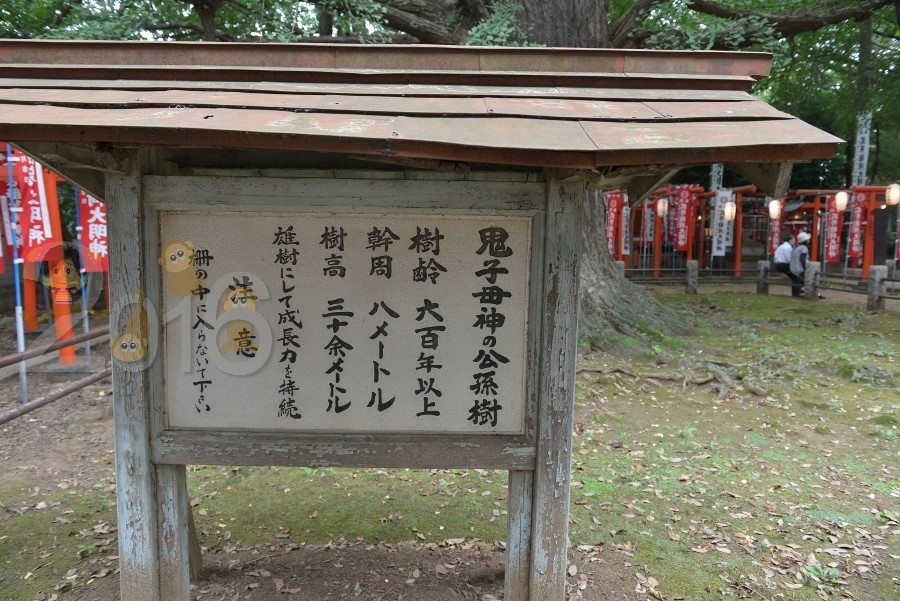 鬼子母神の公孫樹
樹齢 六百年以上
幹周 八メートル
樹高 三十余メートル
雄樹にして成長力を持続
注意
柵の中に入らないで下さい
大明神
2016